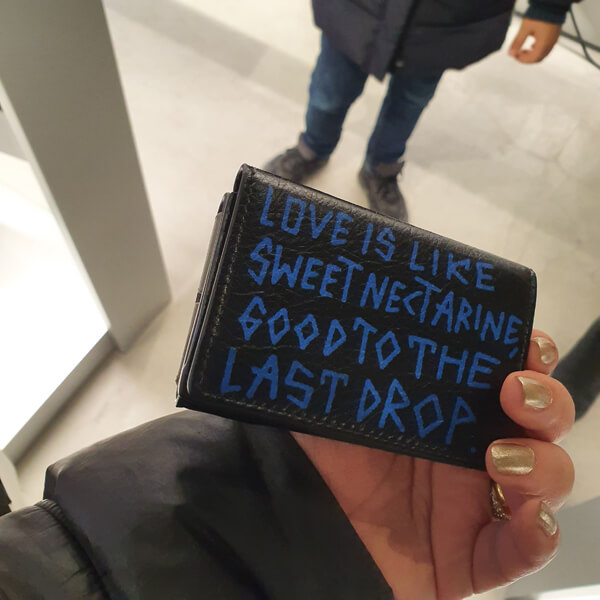 LOVE IS LIKE
SWEET NECTARINE,
GOOD TO THE
LAST DROP.